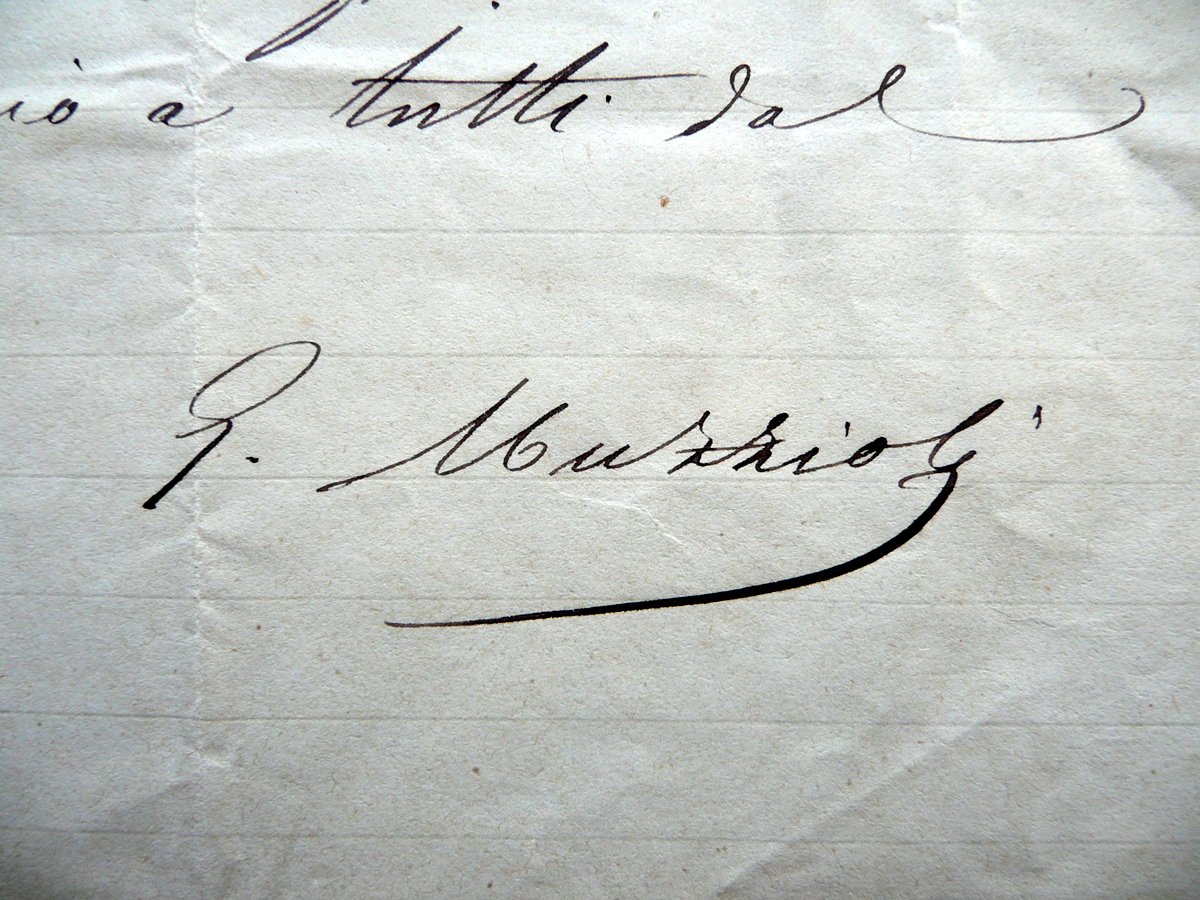 iò a tutti dal
G. Muzzioli